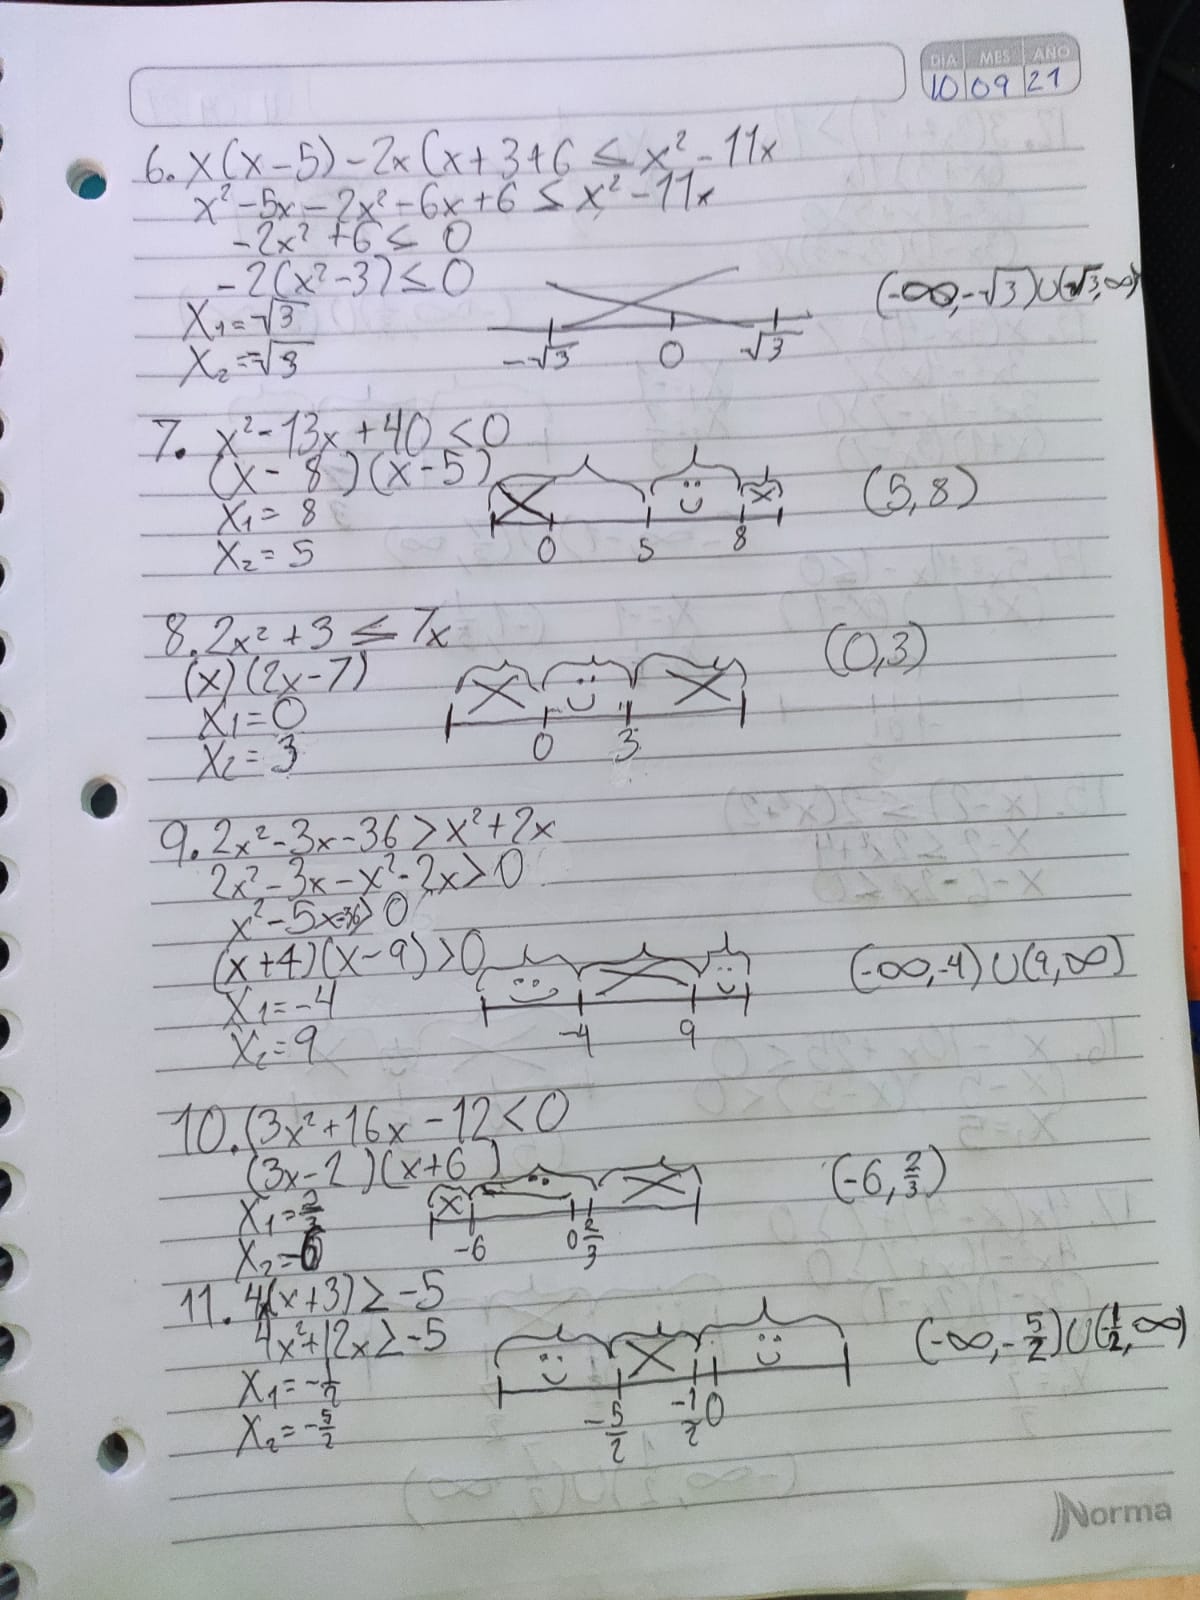 DIA MES AÑO
10 09 21
6. x(x-5)-2x(x+3+6 ≤ x²-11x
x²-5x-2x²-6x+6 ≤ x²-11x
-2x²+6 ≤ 0
-2(x²-3) ≤ 0
X₁=√3
X₂=-√3
-√3 0 √3
(-∞,-√3)∪(√3,∞)
7. x²-13x+40<0
(x-8)(x-5)
X₁=8
X₂=5
0 5 8
(5,8)
8. 2x²+3 ≤ 7x
(x)(2x-7)
X₁=0
X₂=3
0 3
(0,3)
9. 2x²-3x-36>x²+2x
2x²-3x-x²-2x>0
x²-5x-36>0
(x+4)(x-9)>0
X₁=-4
X₂=9
-4 9
(-∞,-4)∪(9,∞)
10. (3x²+16x-12<0
(3x-2)(x+6)
X₁=2/3
X₂=-6
-6 0 2/3
(-6,2/3)
11. 4(x+3)≥-5
4x²+12x≥-5
X₁=-1/2
X₂=-5/2
-5/2 -1/2 0
(-∞,-5/2)∪(-1/2,∞)
Norma